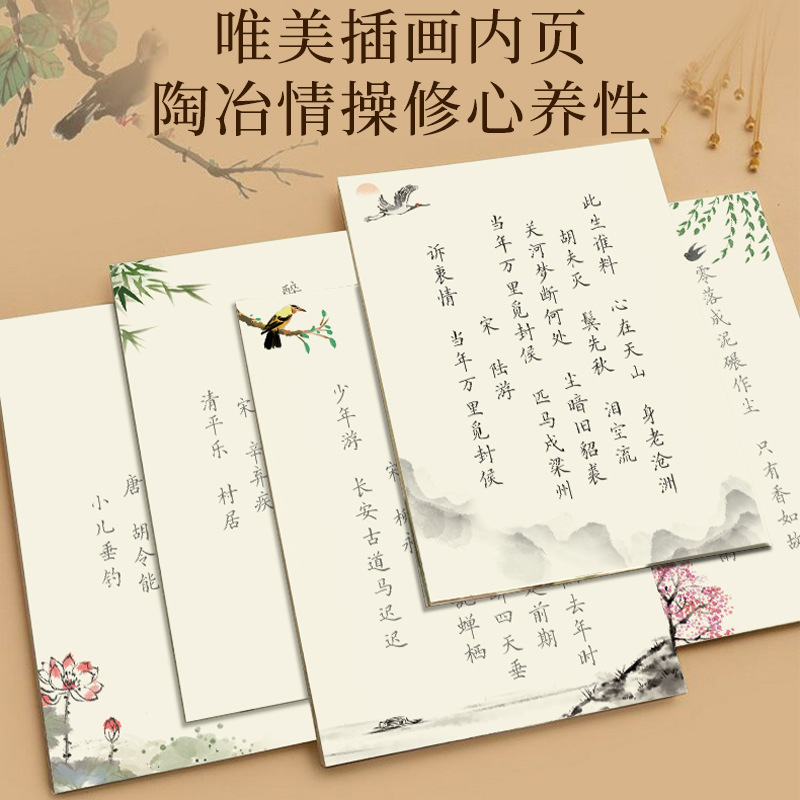 唯美插画内页
陶冶情操修心养性
小儿垂钓
唐 胡令能
清平乐 村居
宋 辛弃疾
少年游 长安古道马迟迟
蝉栖
四天垂
前期
去年时
诉衷情 当年万里觅封侯
宋 陆游
当年万里觅封侯 匹马戍梁州
关河梦断何处 尘暗旧貂裘
胡未灭 鬓先秋 泪空流
此生谁料 心在天山 身老沧洲
零落成泥碾作尘 只有香如故